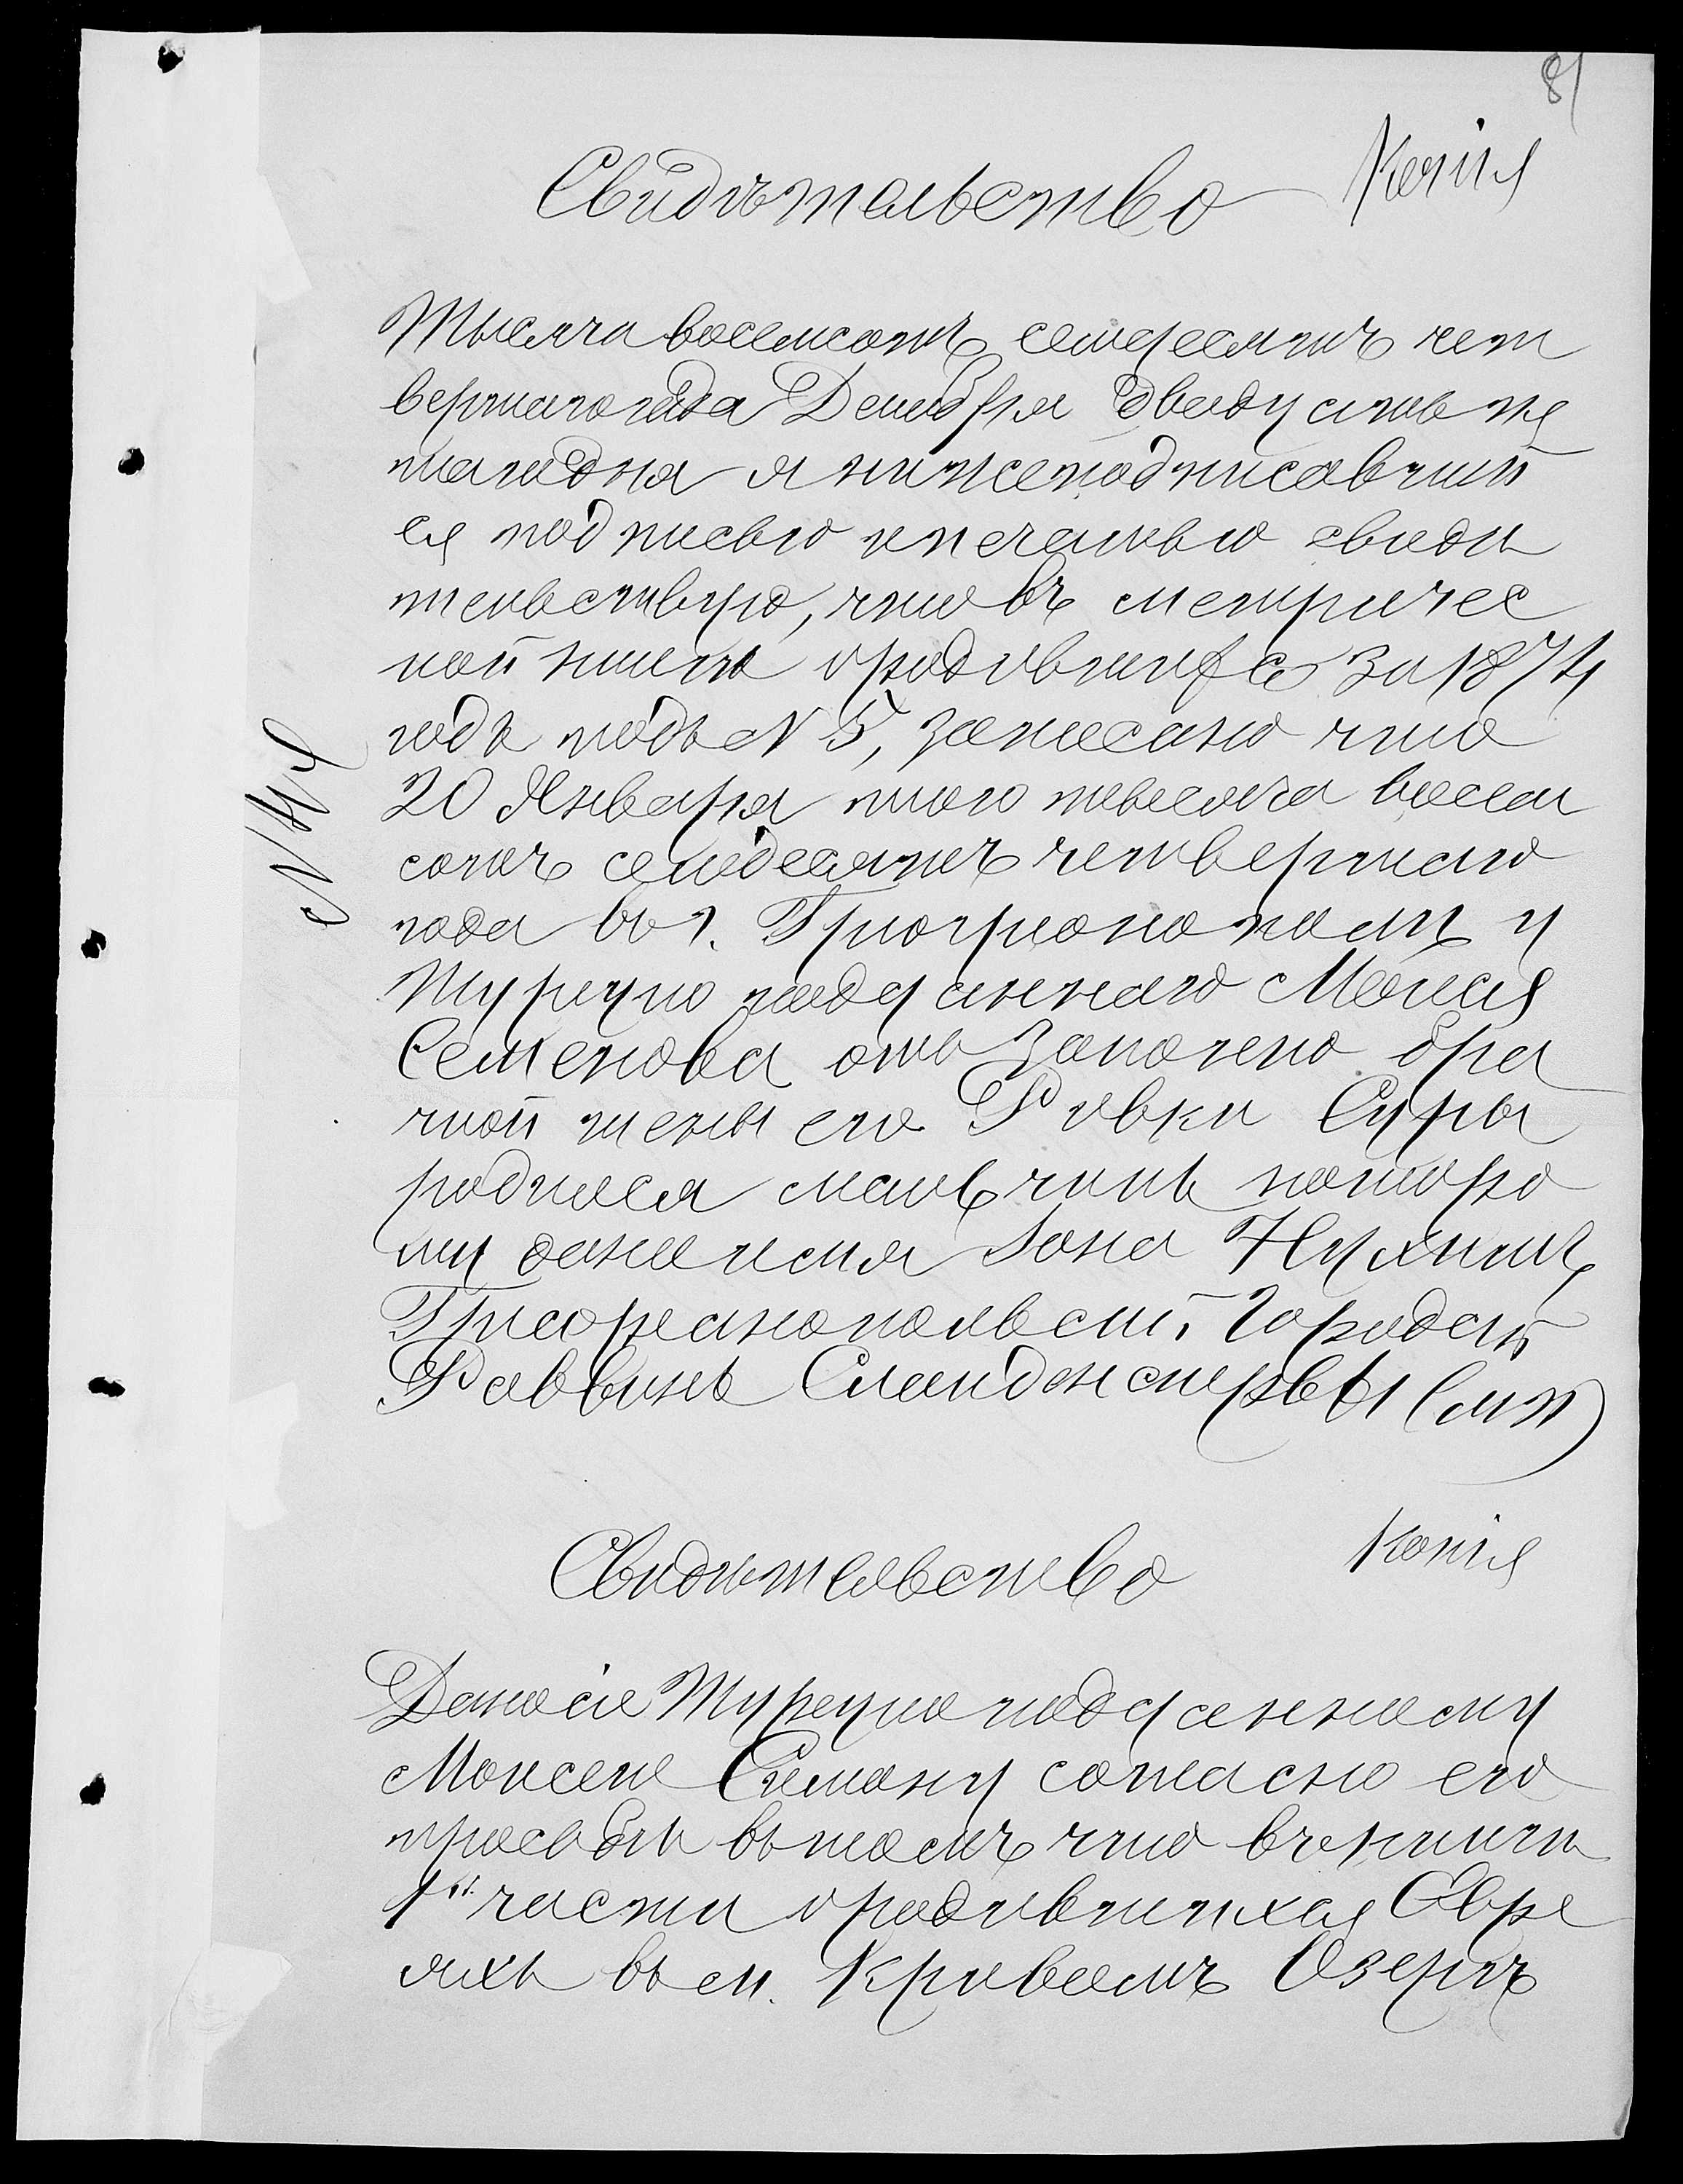 81
Копія
Свидѣтельство
Тысяча восемсотъ семдесятъ чет
вертаго года Декабря двадцать пя
таго дня я нижеподписавший
ся подписью и печатью свиди
тельствую, что въ метричес
кой книге о родившихся за 1874
годъ подъ N 5, записано что
20 Января того тысяча восем
сотъ семдесятъ четвертаго
года въ г. Григориополѣ у
Турецко подданнаго Моисея
Семенова отъ законно бра
чной жены его Ривки Суры
родился мальчикъ которо
му дано имя Нухимъ
Григориопольскій Городской
Раввинъ (мп)
Копія
Свидѣтельство
Дано сіе Турецко подданному
Моисею Симону согласно его
просьбѣ въ томъ что въ книги
1й части о родившихся Евре
яхъ въ м. Кривомъ Озерѣ